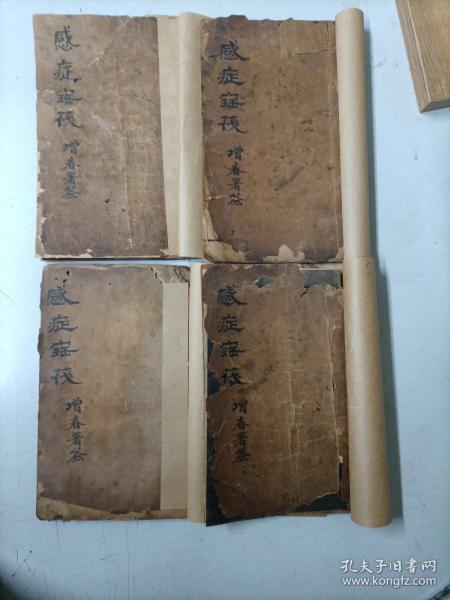 感症寳筏
增春署簽
感症寳筏
增春署簽
感症寳筏
增春署簽
感症寳筏
增春署簽
孔夫子旧书网
www.kongfz.com